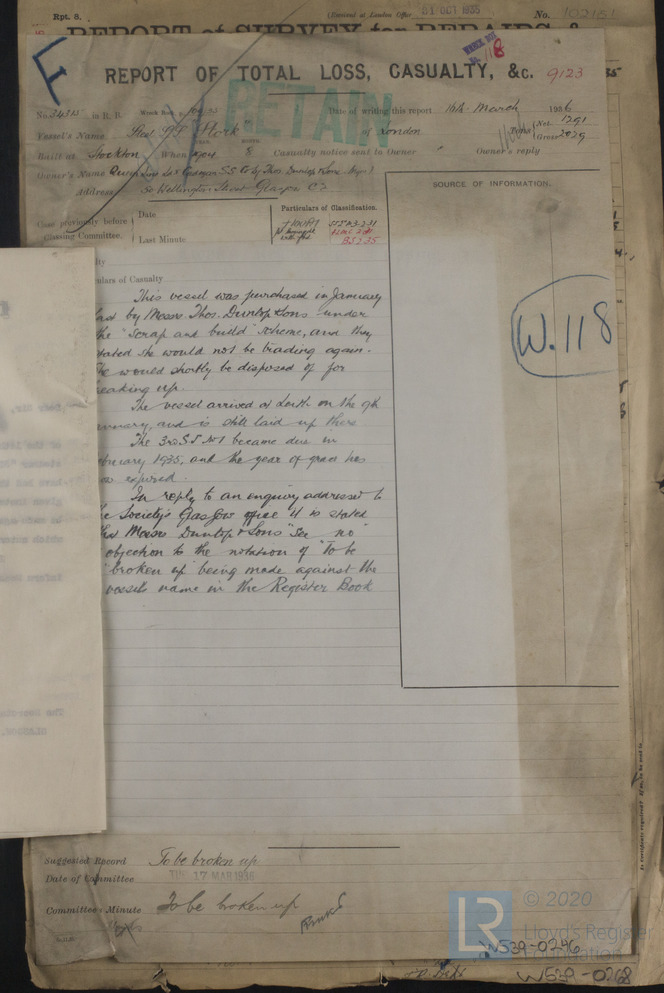 Rpt. 8.
(Received at London Office 31 OCT 1935
No. 102151
REPORT of SURVEY for REPAIRS, &
WRECK BOX
No. 118
REPORT OF TOTAL LOSS, CASUALTY, &c. 9123
RETAIN
No. in R. B.
Date of writing this report 16th March 1936
Vessel's Name Steel Stork of London
Tons Net 1291
Gross 2029
Built at Stockton When 1904 8 Casualty notice sent to Owner
Owner's reply
Owner's Name
Address 50 Wellington Street Glasgow C2
SOURCE OF INFORMATION.
Particulars of Classification.
Class previously before Classing Committee.
Date
Last Minute
BS 2.35
lty
ulars of Casualty
This vessel was purchased in January
last by Messrs Thos. Dunlop & Sons under
the "Scrap and build" scheme, and they
stated she would not be trading again.
She would shortly be disposed of for
breaking up.
The vessel arrived at Leith on the 9th
January, and is still laid up there
The 3rd S.S. No 1 became due in
February 1935, and the year of grace has
now expired.
In reply to an enquiry addressed to
the Society's Glasgow office it is stated
that Messrs Dunlop & Sons "see no"
objection to the notation of "To be
broken up" being made against the
vessels name in the Register Book
W.118
Suggested Record To be broken up
Date of Committee TUE. 17 MAR 1936
Committee's Minute To be broken up
LR
© 2020
Lloyd's Register
Foundation
W539-0246
W539-0268